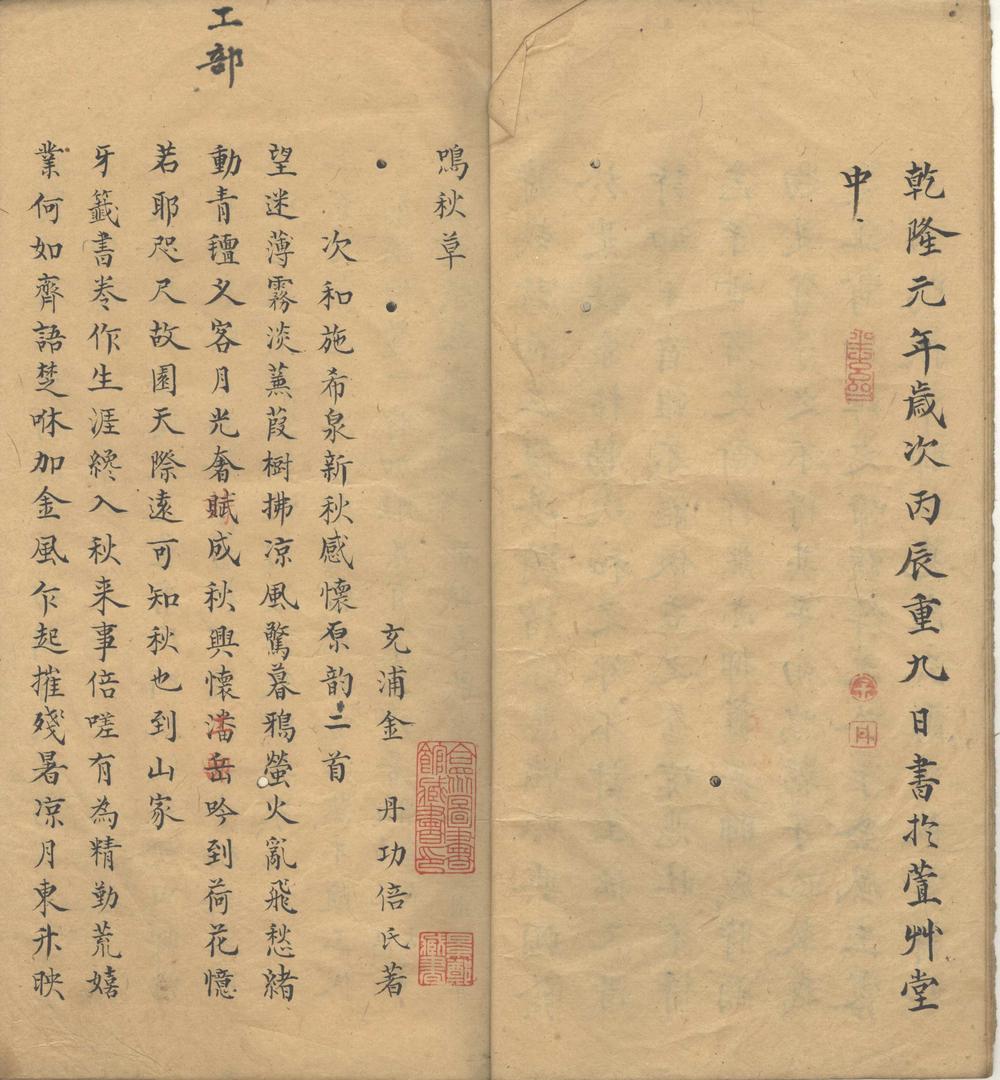 乾隆元年歲次丙辰重九日書於萱艸堂
中
鳴秋草
充浦金 丹功倍氏著
次和施希泉新秋感懷原韵二首
望迷薄霧淡蒹葭樹拂凉風驚暮鴉螢火亂飛愁緒
動青氊义客月光奢賦成秋興懷潘岳吟到荷花憶
工部
若耶咫尺故園天際遠可知秋也到山家
牙籤書卷作生涯纔入秋来事倍嗟有為精勤荒嬉
業何如齊語楚咻加金風乍起摧殘暑凉月東升映